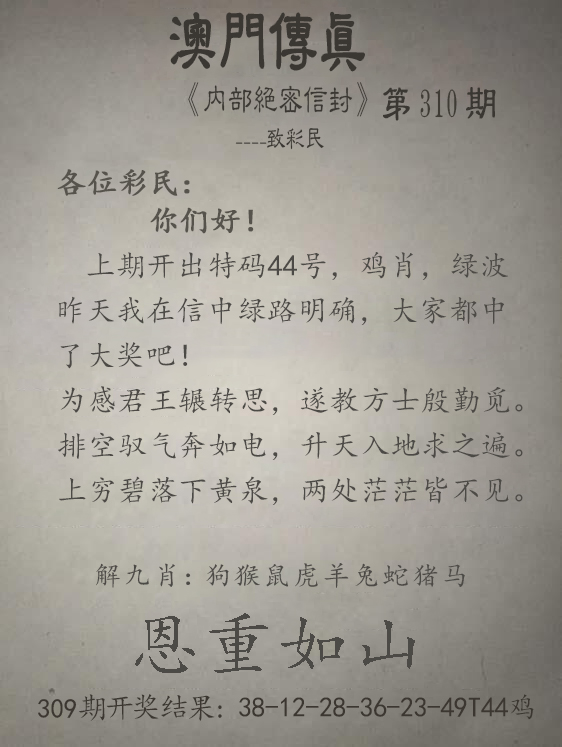 澳門傳眞
《内部絕密信封》第310期
----致彩民
各位彩民：
你们好！
上期开出特码44号，鸡肖，绿波
昨天我在信中绿路明确，大家都中
了大奖吧！
为感君王辗转思，遂教方士殷勤觅。
排空驭气奔如电，升天入地求之遍。
上穷碧落下黄泉，两处茫茫皆不见。
解九肖：狗猴鼠虎羊兔蛇猪马
恩重如山
309期开奖结果：38-12-28-36-23-49T44鸡